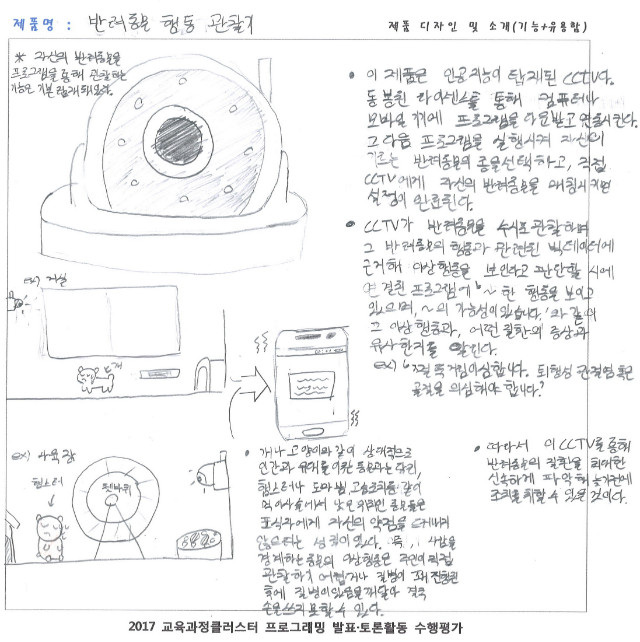 제품명 : 반려동물 행동 관찰기
제품 디자인 및 소개(기능+유용함)
* 자신의 반려동물을
프로그램을 통해 관찰하는
기능은 기본 탑재되있다.
• 이 제품은 인공지능이 탑재된 CCTV다.
동봉된 라이센스를 통해 컴퓨터나
모바일 기기에 프로그램을 다운받고 연결시킨다.
그 다음 프로그램을 실행시켜 자신의
기르는 반려동물의 종을 선택하고, 직접
CCTV에게 자신의 반려동물을 매칭시키면
설정이 완료된다.
• CCTV가 반려동물을 수시로 관찰하며
그 반려동물의 행동과 관련된 빅데이터에
근거해 이상행동을 보인다고 판단할 시에
연결된 프로그램에 '~한 행동을 보이고
있으며, ~의 가능성이 있습니다.'와 같이
그 이상행동과, 어떤 질환의 증상과
유사한지를 알린다.
ex) '절뚝거림이 심합니다. 퇴행성 관절염 혹은
골절을 의심해야 합니다.'
ex) 거실
개
ex) 사육장
햄스터
쳇바퀴
• 개나 고양이와 같이 상대적으로
인간과 유대를 이룬 동물과는 달리,
햄스터나 도마뱀, 고슴도치 등 같이
먹이사슬에서 낮은 위치인 동물들은
포식자에게 자신의 약점을 드러내지
않으려는 성질이 있다. 즉, 사람을
경계하는 동물의 이상행동은 주인이 직접
관찰하기 어렵거나 질병이 크게 진행된
후에 질병이 있음을 깨달아 결국
손을 쓰지 못할 수 있다.
• 따라서 이 CCTV를 통해
반려동물의 질환을 최대한
신속하게 파악해 늦기전에
조치를 취할 수 있을 것이다.
2017 교육과정클러스터 프로그래밍 발표·토론활동 수행평가